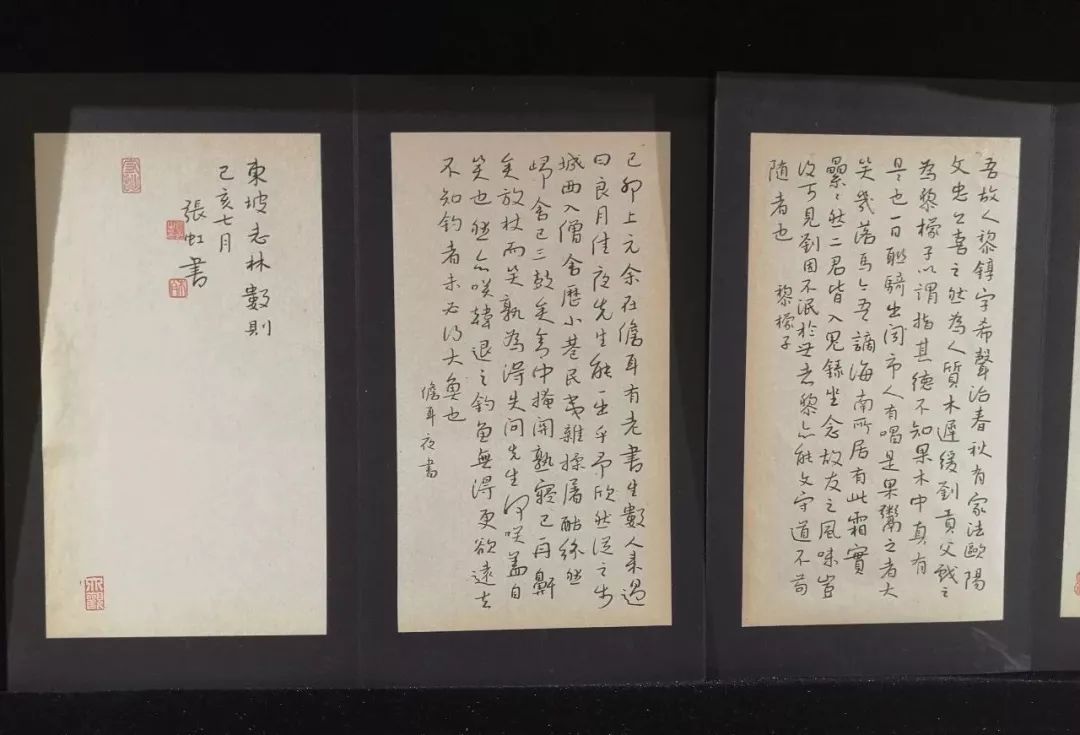 吾故人黎錞字希聲治春秋有家法歐陽
文忠公喜之然為人質木遲緩劉貢父戲之
為黎檬子以謂指其德不知果木中真有
是也一日聯騎出聞市人有唱是果鬻之者大
笑幾落馬今吾謫海南所居有此霜實
纍〻然二君皆入鬼錄坐念故友之風味豈
復可見劉固不泯於世者黎亦能文守道不苟
隨者也
黎檬子
己卯上元余在儋耳有老書生數人来過
曰良月佳夜先生能一出乎予欣然從之步
城西入僧舍歷小巷民夷雜揉屠酤紛然
歸舍已三鼓矣舍中掩關熟寢已再鼾
矣放杖而笑孰為得失問先生何咲蓋自
笑也然亦咲韓退之釣魚無得更欲遠去
不知釣者未必得大魚也
儋耳夜書
東坡志林數則
己亥七月
張虹書